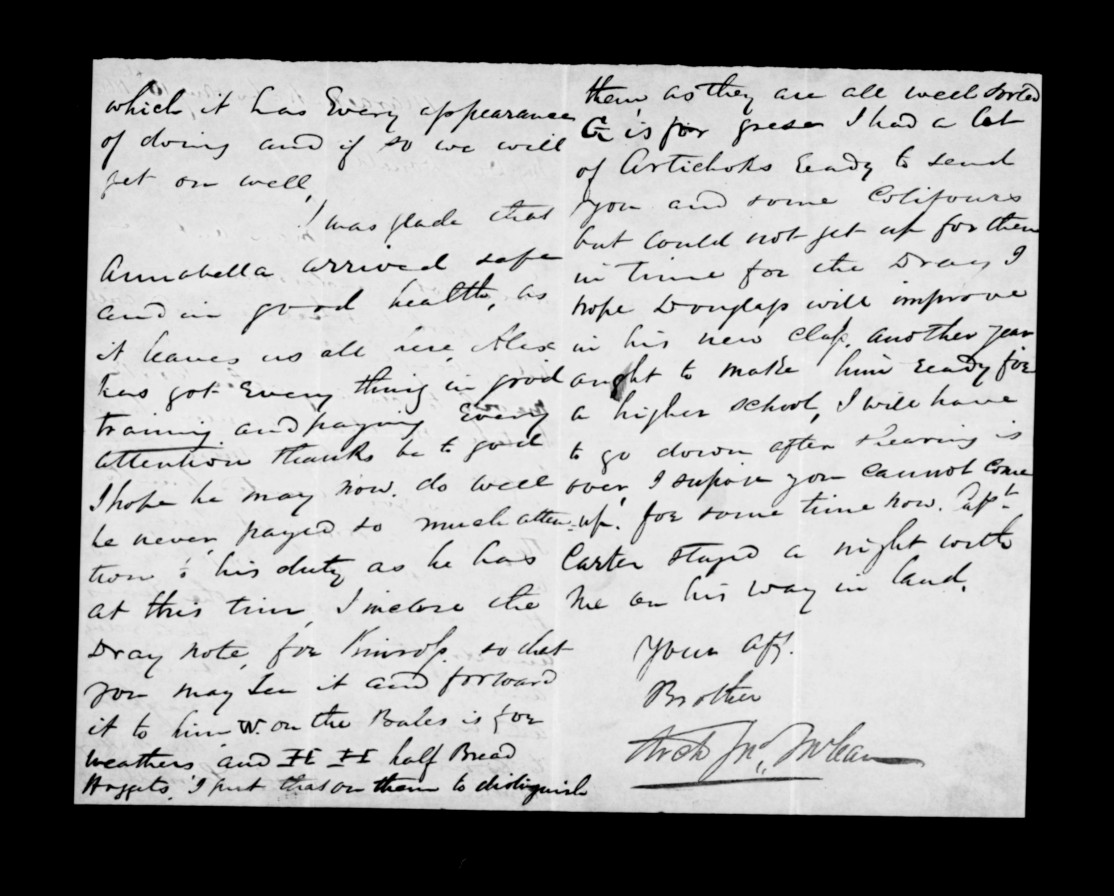 which it has Every appearance
of doing and if so we will
get on well,
I was glade that
Annabella arrived safe
and in good health, as
it leaves us all here, Alex
has got Every thing in good
training and paying Every
attention thanks be to good
I hope he may now. do well
he never payed so much atten
tion to his duty as he has
at this time, I inclose the
Dray note, for Kinross. so that
you may see it and forward
it to him W. on the Bales is for
weathers, and half Bread
Hoggets, I put that on them to distinguish
them, as they are all well sorted
G is for grese I had a lot
of Artichoks ready to send
you and some Colifours
but could not get up for them
in time for the Dray I
hope Douglass will improve
in his new class, another year
aught to make him ready for
a higher school, I will have
to go down after shearing is
over, I supose you cannot come
up. for some time now. Capt
Carter stayed a night with
me on his way in land.
Your Afft.
Brother
Archd Jno. McLean